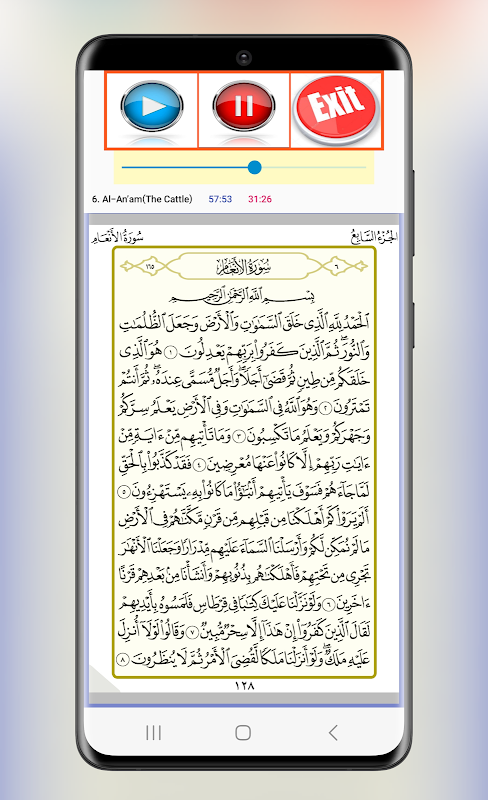 Exit
6. Al-An'am(The Cattle) 57:53 31:26
الجُزءُ السَّابِعُ سُورَةُ الأَنْعَامِ
٦ سُورَةُ الأَنْعَامِ ١٦٥
بِسْمِ ٱللَّهِ ٱلرَّحْمَٰنِ ٱلرَّحِيمِ
ٱلْحَمْدُ لِلَّهِ ٱلَّذِى خَلَقَ ٱلسَّمَٰوَٰتِ وَٱلْأَرْضَ وَجَعَلَ ٱلظُّلُمَٰتِ
وَٱلنُّورَ ۖ ثُمَّ ٱلَّذِينَ كَفَرُوا۟ بِرَبِّهِمْ يَعْدِلُونَ ١ هُوَ ٱلَّذِى
خَلَقَكُم مِّن طِينٍ ثُمَّ قَضَىٰٓ أَجَلًا ۖ وَأَجَلٌ مُّسَمًّى عِندَهُۥ ۖ ثُمَّ أَنتُمْ
تَمْتَرُونَ ٢ وَهُوَ ٱللَّهُ فِى ٱلسَّمَٰوَٰتِ وَفِى ٱلْأَرْضِ ۖ يَعْلَمُ سِرَّكُمْ
وَجَهْرَكُمْ وَيَعْلَمُ مَا تَكْسِبُونَ ٣ وَمَا تَأْتِيهِم مِّنْ ءَايَةٍ مِّنْ
ءَايَٰتِ رَبِّهِمْ إِلَّا كَانُوا۟ عَنْهَا مُعْرِضِينَ ٤ فَقَدْ كَذَّبُوا۟ بِٱلْحَقِّ
لَمَّا جَآءَهُمْ ۖ فَسَوْفَ يَأْتِيهِمْ أَنۢبَٰٓؤُا۟ مَا كَانُوا۟ بِهِۦ يَسْتَهْزِءُونَ ٥
أَلَمْ يَرَوْا۟ كَمْ أَهْلَكْنَا مِن قَبْلِهِم مِّن قَرْنٍ مَّكَّنَّٰهُمْ فِى ٱلْأَرْضِ
مَا لَمْ نُمَكِّن لَّكُمْ وَأَرْسَلْنَا ٱلسَّمَآءَ عَلَيْهِم مِّدْرَارًا وَجَعَلْنَا ٱلْأَنْهَٰرَ
تَجْرِى مِن تَحْتِهِمْ فَأَهْلَكْنَٰهُم بِذُنُوبِهِمْ وَأَنشَأْنَا مِنۢ بَعْدِهِمْ قَرْنًا
ءَاخَرِينَ ٦ وَلَوْ نَزَّلْنَا عَلَيْكَ كِتَٰبًا فِى قِرْطَاسٍ فَلَمَسُوهُ بِأَيْدِيهِمْ
لَقَالَ ٱلَّذِينَ كَفَرُوٓا۟ إِنْ هَٰذَآ إِلَّا سِحْرٌ مُّبِينٌ ٧ وَقَالُوا۟ لَوْلَآ أُنزِلَ
عَلَيْهِ مَلَكٌ ۖ وَلَوْ أَنزَلْنَا مَلَكًا لَّقُضِىَ ٱلْأَمْرُ ثُمَّ لَا يُنظَرُونَ ٨
١٢٨